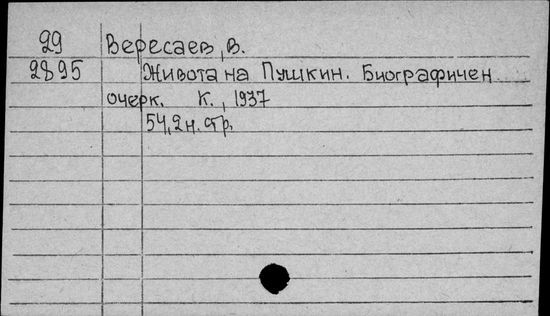 29 Вересаев, В.
2895 Живота на Пушкин. Биографичен
очерк. К., 1937
54, 2 н. стр.